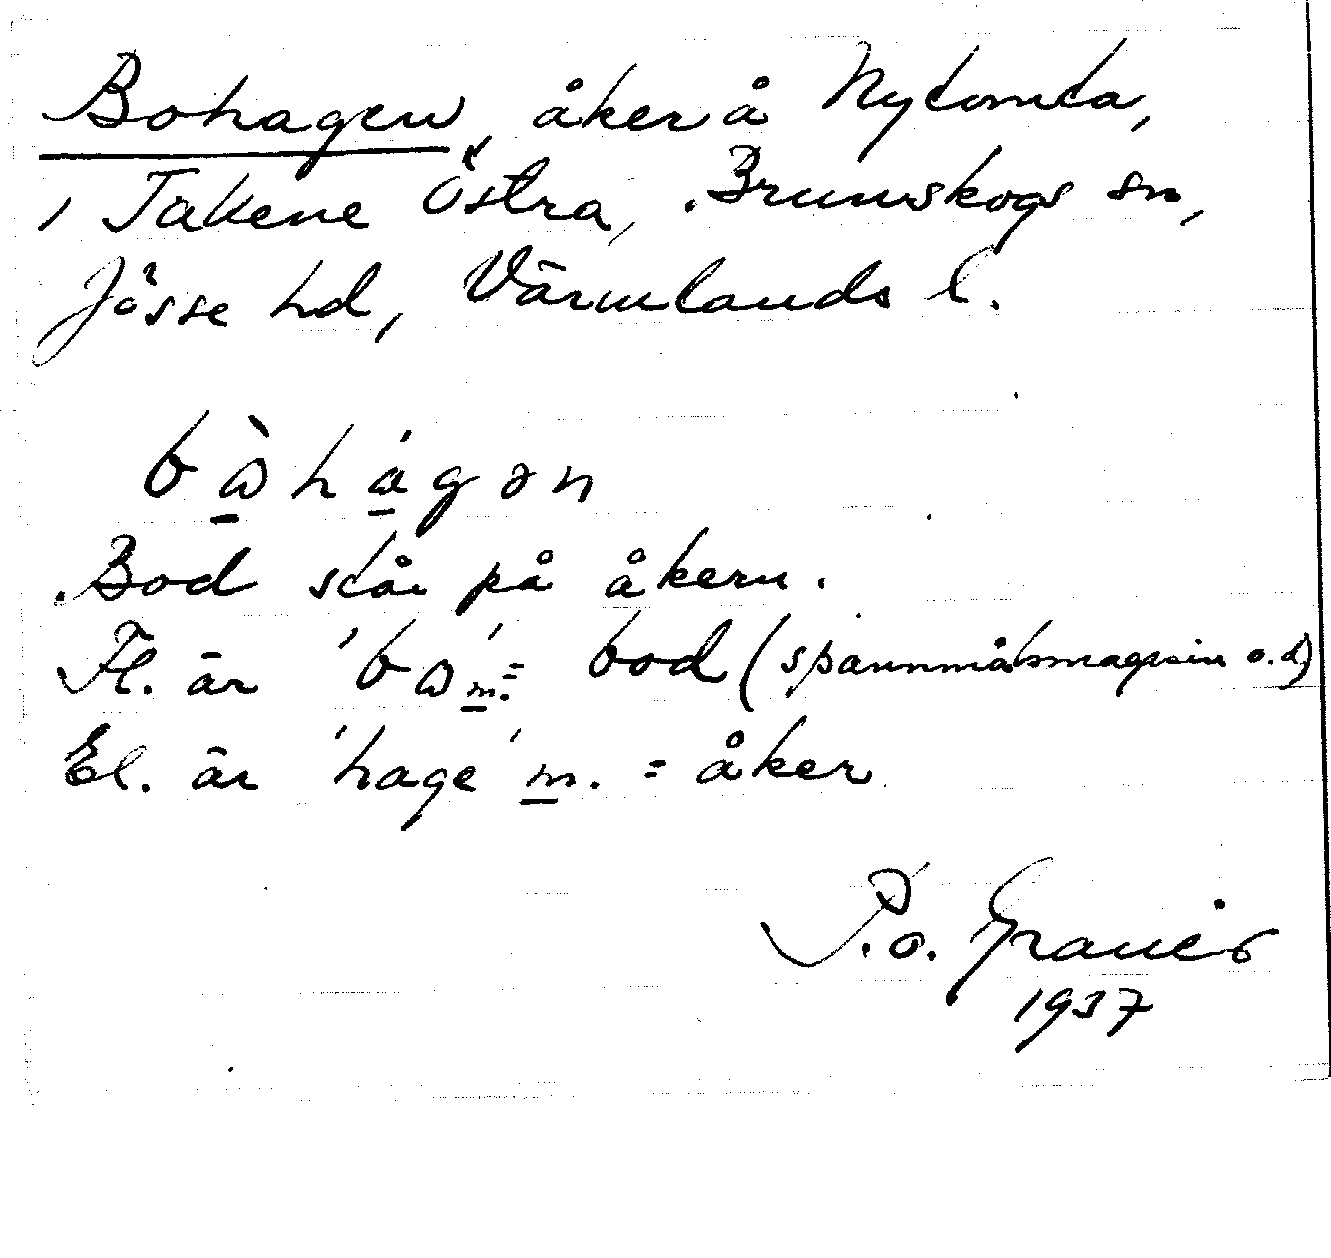 Bohagen, åker å Nytomta,
i Takene Östra, Brunskogs sn,
Jösse hd, Värmlands l.
bɷ̀hágən
Bod står på åkern.
Fl. är 'bɷ' m. = bod (spannmålsmagasin o.d)
El. är 'hage' m. = åker
P.O. Graner
1937